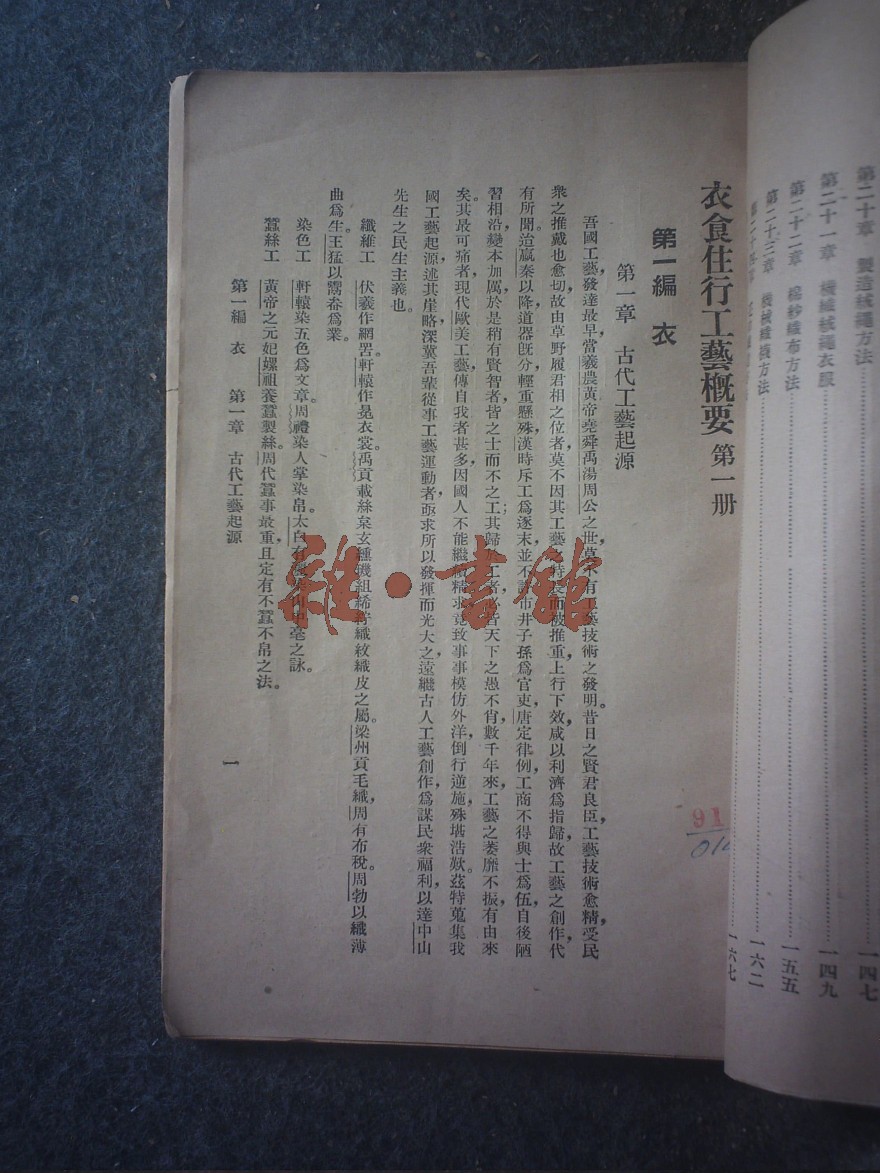 第二十章　製造絨繩方法　一四七
第二十一章　機織絨繩衣服　一四九
第二十二章　棉紗織布方法　一五五
第二十三章　機械織襪方法　一六二
一六七
衣食住行工藝概要　第一册
第一編　衣
第一章　古代工藝起源
吾國工藝，發達最早，當羲農黃帝堯舜禹湯周公之世，莫不有工藝技術之發明。昔日之賢君良臣，工藝技術愈精，受民
衆之推戴也愈切，故由草野履君相之位者，莫不因其工藝之特長而被推重，上行下效，咸以利濟爲指歸，故工藝之創作，代
有所聞。迨嬴秦以降，道器旣分，輕重懸殊，漢時斥工爲逐末，並不許市井子孫爲官吏，唐定律例，工商不得與士爲伍，自後陋
習相沿，變本加厲，於是稍有賢智者，皆之士而不之工；其歸於工者，必皆天下之愚不肖，數千年來，工藝之萎靡不振，有由來
矣。其最可痛者，現代歐美工藝，傳自我者甚多，因國人不能繼續精求，竟致事事模仿外洋，倒行逆施，殊堪浩歎。茲特蒐集我
國工藝起源，述其崖略，深冀吾輩從事工藝運動者，亟求所以發揮而光大之，遠繼古人工藝創作，爲謀民衆福利，以達中山
先生之民生主義也。
纖維工　伏羲作網罟。軒轅作冕衣裳。禹貢載絲枲玄纁璣組絺紵織紋織皮之屬。梁州貢毛織，周有布稅。周勃以織薄
曲爲生。王猛以鬻畚爲業。
染色工　軒轅染五色爲文章。周禮染人掌染帛。太白有之詠。
蠶絲工　黃帝之元妃嫘祖養蠶製絲。周代蠶事最重，且定有不蠶不帛之法。
第一編　衣　第一章　古代工藝起源　一
91
雜·書館